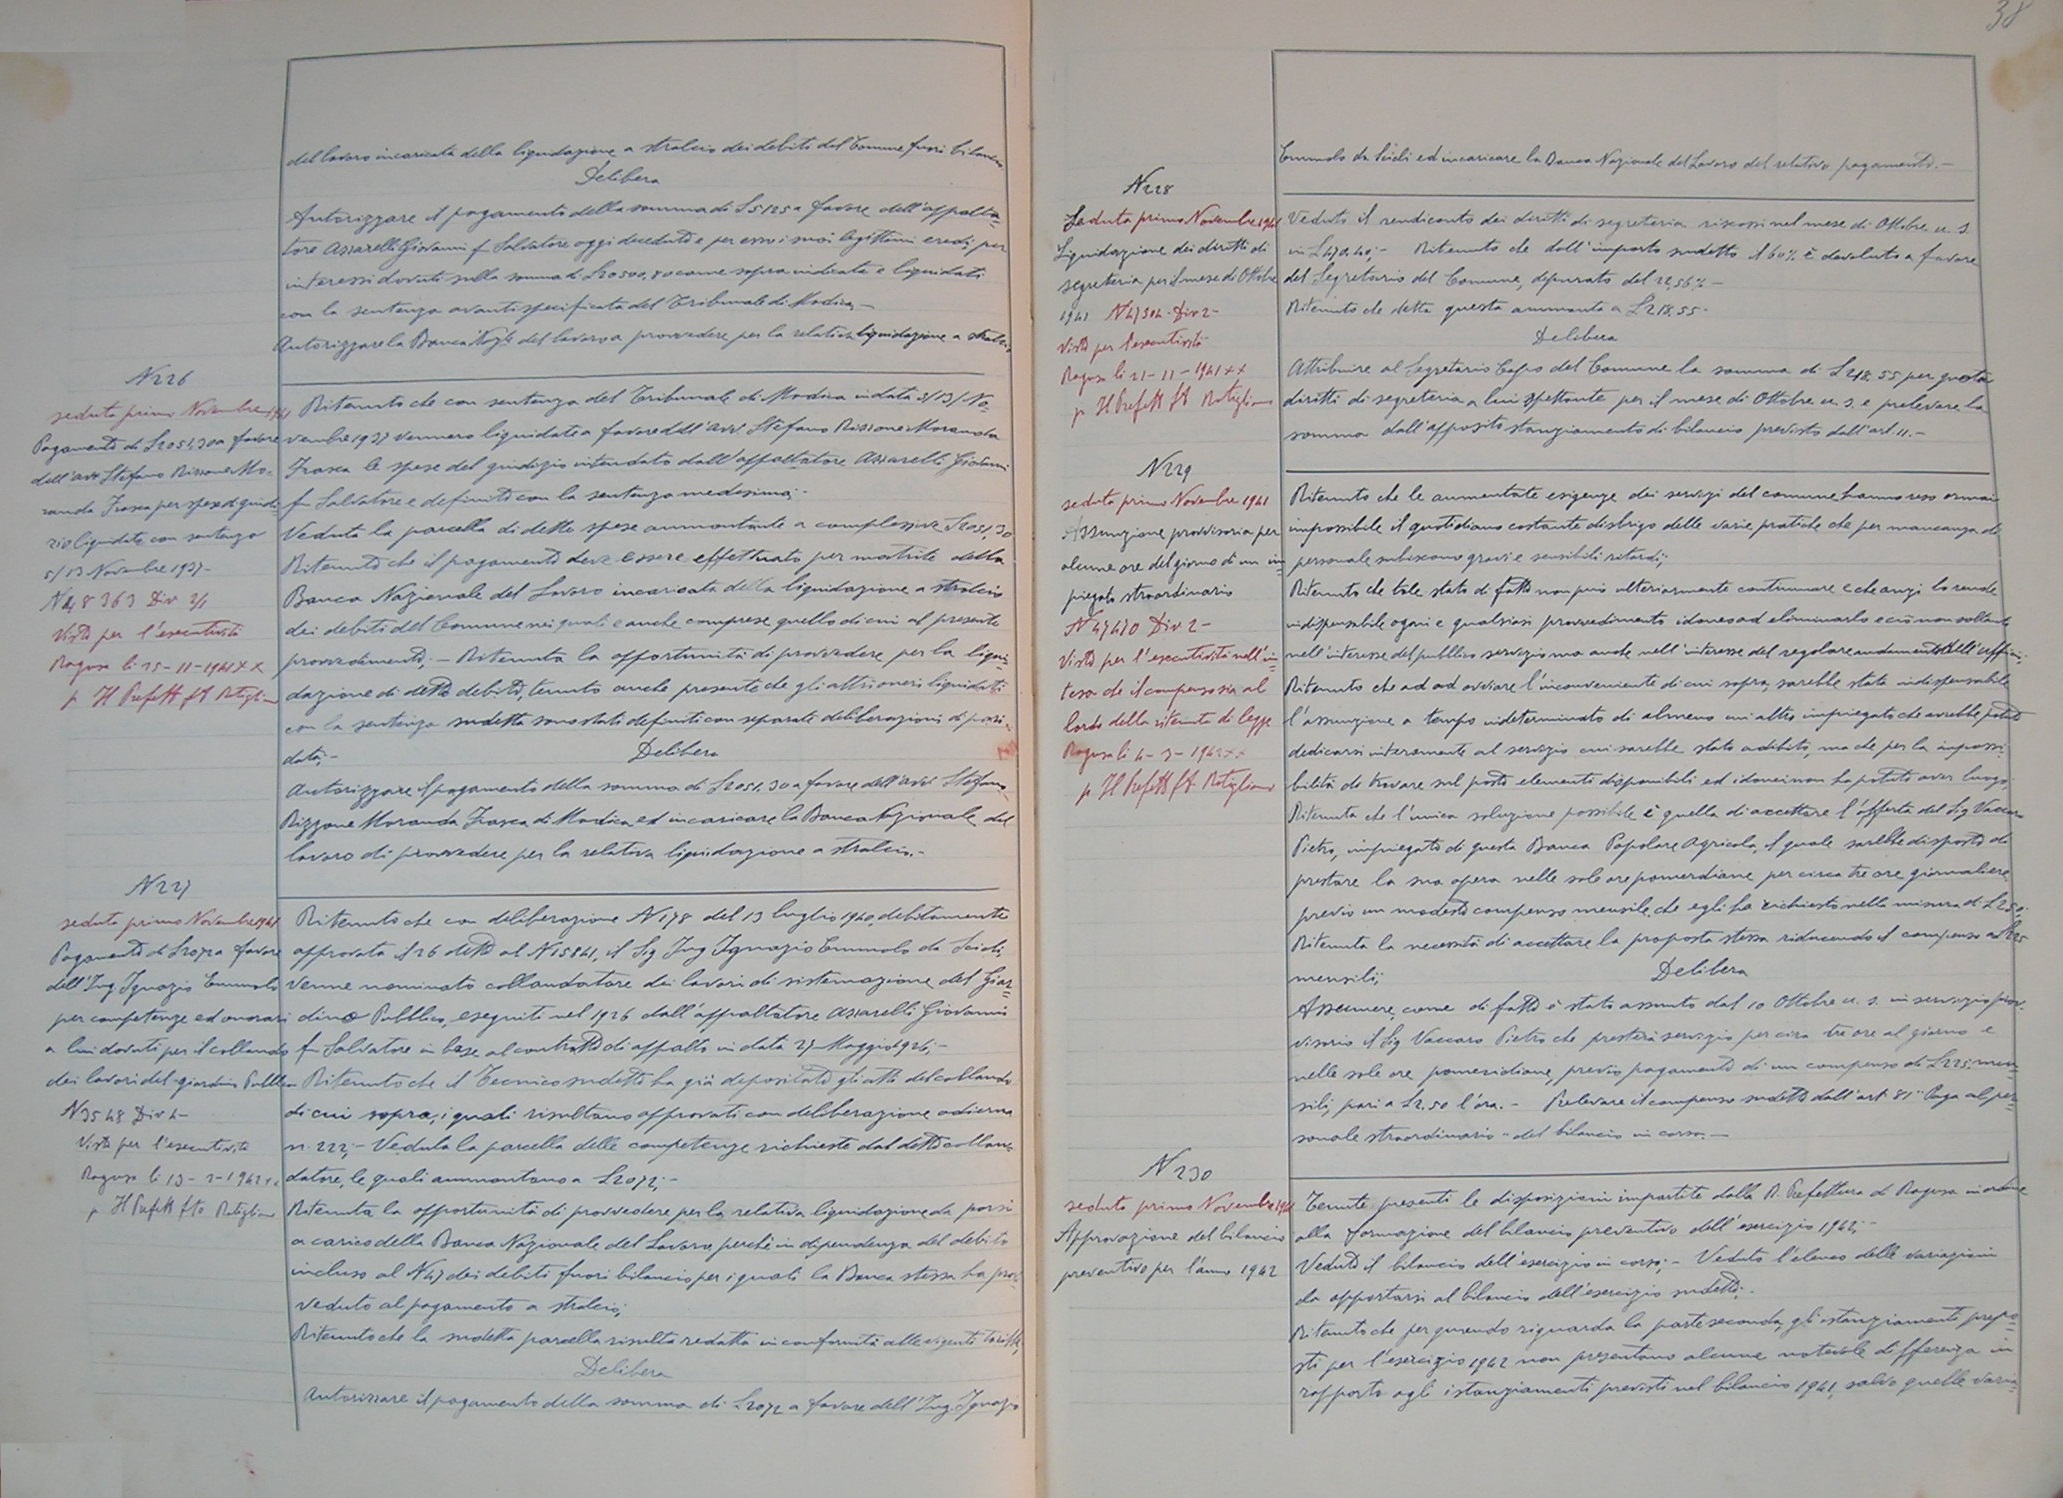 38
del lavoro incaricata della liquidazione a stralcio dei debiti del Comune fuori bilancio
Delibera
Autorizzare il pagamento della somma di £5125 a favore dell'appalta=
tore Assarelli Giovanni fu Salvatore oggi deceduto e per esso i suoi legittimi eredi, per
interessi dovuti sulla somma di £20500,80 come sopra indicata e liquidati
con la sentenza avanti specificata del Tribunale di Modica,-
Autorizzare la Banca Naz/le del lavoro a provvedere per la relativa liquidazione a stralcio
N226
seduta primo Novembre 1941
Pagamento di £2051,30 a favore
dell'avv Stefano Rizzone Mo-
randa Frasca per spese di giudi-
zio liquidate con sentenza
5/13 Novembre 1937-
N48363 Div 2/1
Visto per l'esecutività
Ragusa li 25-11-1941 XX
p Il Prefetto fto Rotigliano
Ritenuto che con sentenza del Tribunale di Modica in data 5/13/No-
vembre 1937 vennero liquidate a favore dell'avv. Stefano Rizzone Moranda
Frasca le spese del giudizio intentato dall'appaltatore Assarelli Giovanni
fu Salvatore e definito con la sentenza medesima;-
Veduta la parcella di dette spese ammontante a complessive £2051,30
Ritenuto che il pagamento deve essere effettuato per tramite della
Banca Nazionale del Lavoro incaricata della liquidazione a stralcio
dei debiti del Comune nei quali è anche compreso quello di cui al presente
provvedimento;- Ritenuta la opportunità di provvedere per la liqui-
dazione di detto debito, tenuto anche presente che gli altri oneri liquidati
con la sentenza sudetta sono stati definiti con separate deliberazioni di pari
data;-
Delibera
Autorizzare il pagamento della somma di £2051,30 a favore dell'avv Stefano
Rizzone Moranda Frasca di Modica ed incaricare la Banca Nazionale del
lavoro di provvedere per la relativa liquidazione a stralcio.-
N227
seduta primo Novembre 1941
Pagamento di £2072 a favore
dell'Ing. Ignazio Emmolo
per competenze ed onorari
a lui dovuti per il collaudo
dei lavori del giardino Pubblico
N3548 Div 4-
Visto per l'esecutività
Ragusa li 13-2-1942 XX
p Il Prefetto fto Rotigliano
Ritenuto che con deliberazione N178 del 13 luglio 1940, debitamente
approvata il 26 detto al N15841, il Sig Ing Ignazio Emmolo da Scicli,
venne nominato collaudatore dei lavori di sistemazione del Giar=
dino Pubblico, eseguiti nel 1926 dall'appaltatore Assarelli Giovanni
fu Salvatore in base al contratto di appalto in data 27 Maggio 1926;-
Ritenuto che il Tecnico sudetto ha già depositato gli atti del collaudo
di cui sopra, i quali risultano approvati con deliberazione odierna
n. 222;- Veduta la parcella delle competenze richieste dal detto collau-
datore, le quali ammontano a £2072;-
Ritenuta la opportunità di provvedere per la relativa liquidazione da porsi
a carico della Banca Nazionale del Lavoro, perchè in dipendenza del debito
incluso al N47 dei debiti fuori bilancio per i quali la Banca stessa ha prov-
veduto al pagamento a stralcio;
Ritenuto che la sudetta parcella risulta redatta in conformità alle vigenti tariffe,
Delibera
Autorizzare il pagamento della somma di £2072 a favore dell'Ing. Ignazio
Emmolo da Scicli ed incaricare la Banca Nazionale del Lavoro del relativo pagamento.-
N228
Seduta primo Novembre 1941
Liquidazione dei diritti di
segreteria per il mese di Ottobre
1941 N47504 Div 2-
Visto per l'esecutività
Ragusa li 21-11-1941 XX
p Il Prefetto fto Rotigliano
Veduto il rendiconto dei diritti di segreteria riscossi nel mese di Ottobre u. s.
in £470,40;- Ritenuto che dall'importo sudetto il 60% è devoluto a favore
del Segretario del Comune, depurato del 22,56%-
Ritenuto che detta quota ammonta a £218,55-
Delibera
Attribuire al Segretario Capo del Comune la somma di £218,55 per quota
diritti di segreteria a lui spettante per il mese di Ottobre u. s. e prelevare la
somma dall'apposito stanziamento di bilancio previsto dall'art. 11.-
N229
seduta primo Novembre 1941
Assunzione provvisoria per
alcune ore del giorno di un im=
piegato straordinario
N47470 Div 2-
Visto per l'esecutività nell'in-
tesa che il compenso sia al
lordo della ritenuta di legge
Ragusa li 4-3-1942 XX
p Il Prefetto fto Rotigliano
Ritenuto che le aumentate esigenze dei servizi del comune hanno reso ormai
impossibile il quotidiano costante disbrigo delle varie pratiche che per mancanza di
personale subiscono gravi e sensibili ritardi;
Ritenuto che tale stato di fatto non può ulteriormente continuare e che anzi lo rende
indispensabile ogni e qualsiasi provvedimento idoneo ad eliminarlo e ciò non soltanto
nell'interesse del pubblico servizio ma anche nell'interesse del regolare andamento dell'ufficio;
Ritenuto che ad ad ovviare l'inconveniente di cui sopra, sarebbe stata indispensabile
l'assunzione a tempo indeterminato di almeno un altro impiegato che avrebbe potuto
dedicarsi interamente al servizio cui sarebbe stato adibito, ma che per la impossi-
bilità di trovare sul posto elementi disponibili ed idonei non ha potuto aver luogo;
Ritenuta che l'unica soluzione possibile è quella di accettare l'offerta del Sig Vaccaro
Pietro, impiegato di questa Banca Popolare Agricola, il quale sarebbe disposto di
prestare la sua opera nelle sole ore pomeridiane per circa tre ore giornaliere
previo un modesto compenso mensile, che egli ha richiesto nella misura di £250;
Ritenuta la necessità di accettare la proposta stessa riducendo il compenso a £225
mensili;
Delibera
Assumere, come di fatto è stato assunto dal 10 Ottobre u. s. in servizio prov-
visorio il Sig Vaccaro Pietro che presterà servizio per circa tre ore al giorno e
nelle sole ore pomeridiane, previo pagamento di un compenso di £225 men-
sili, pari a £2,50 l'ora.- Prelevare il compenso sudetto dall'art 81 "Paga al per-
sonale straordinario" del bilancio in corso.-
N230
seduta primo Novembre 1941
Approvazione del bilancio
preventivo per l'anno 1942
Tenute presenti le disposizioni impartite dalla R. Prefettura di Ragusa in ordine
alla formazione del bilancio preventivo dell'esercizio 1942;-
Veduto il bilancio dell'esercizio in corso;- Veduto l'elenco delle variazioni
da apportarsi al bilancio dell'esercizio sudetto;-
Ritenuto che per quando riguarda la parte seconda, gli istanziamenti propo=
sti per l'esercizio 1942 non presentano alcuna notevole differenza in
rapporto agli istanziamenti previsti nel bilancio 1941, salvo quelle varia-